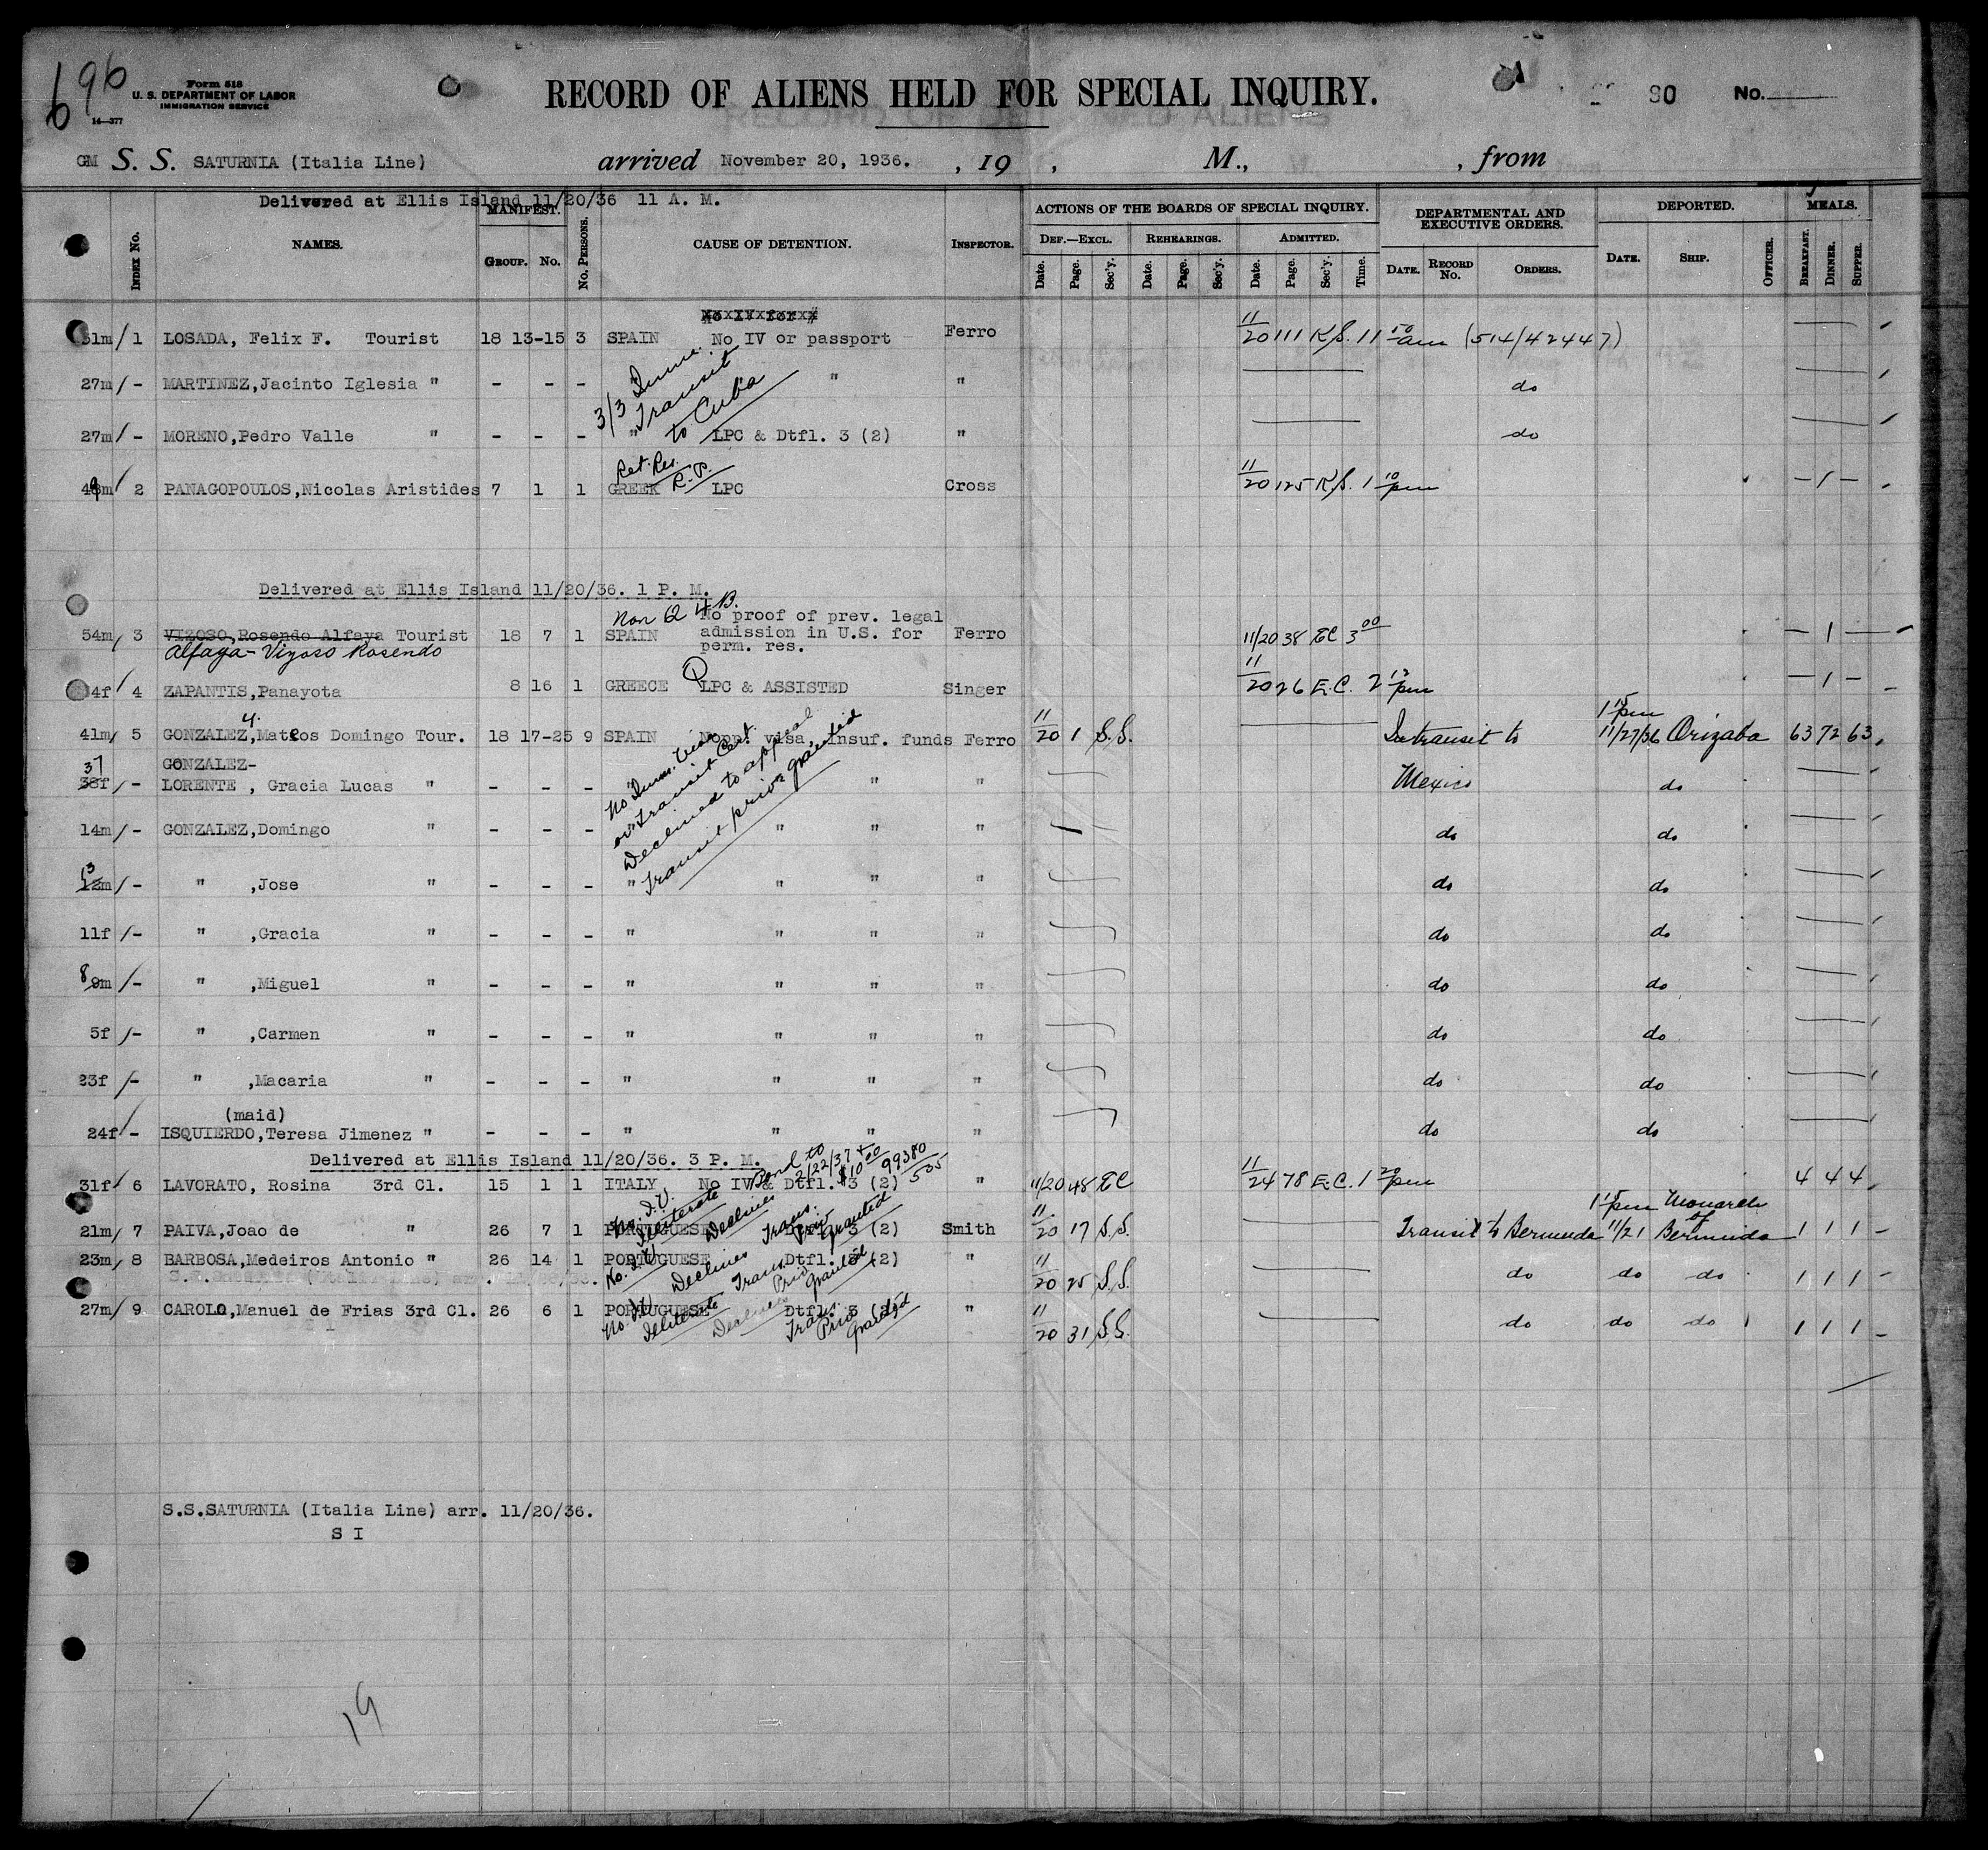 696
Form 518
U. S. DEPARTMENT OF LABOR
IMMIGRATION SERVICE
14—377
RECORD OF ALIENS HELD FOR SPECIAL INQUIRY.
90 No.
GM S. S. SATURNIA (Italia Line) arrived November 20, 1936. , 19 , M., , from
Delivered at Ellis Island 11/20/36 11 A. M.
INDEX No. NAMES. MANIFEST. GROUP. No. No. PERSONS. CAUSE OF DETENTION. INSPECTOR. ACTIONS OF THE BOARDS OF SPECIAL INQUIRY. DEPARTMENTAL AND EXECUTIVE ORDERS. DEPORTED. MEALS.
DEF.—EXCL. REHEARINGS. ADMITTED.
Date. Page. Sec'y. Date. Page. Sec'y. Date. Page. Sec'y. Time. DATE. RECORD No. ORDERS. DATE. SHIP. OFFICER. BREAKFAST. DINNER. SUPPER.
31m/ 1 LOSADA, Felix F. Tourist 18 13-15 3 SPAIN No IV or passport Ferro 11/20 111 K.S. 11 10 am (514/42447)
27m/ - MARTINEZ,Jacinto Iglesia " - - - " " do
3/3 Imm. Transit to Cuba
27m/ - MORENO,Pedro Valle " - - - " LPC & Dtfl. 3 (2) " do
Ret. Res. R.P.
49m/ 2 PANAGOPOULOS,Nicolas Aristides 7 1 1 GREEK LPC Cross 11/20 125 K.S. 1 10 pm - 1 -
Delivered at Ellis Island 11/20/36. 1 P. M.
Non Q 4 B.
54m/ 3 VIZOSO,Rosendo Alfaya Tourist 18 7 1 SPAIN No proof of prev. legal admission in U.S. for perm. res. Ferro 11/20 38 EC 3 00 - 1 -
Alfaya-Vizoso Rosendo
4f/ 4 ZAPANTIS,Panayota 8 16 1 GREECE LPC & ASSISTED Singer 11/20 26 E.C. 2 12 pm - 1 -
41m/ 5 GONZALEZ,Mateos Domingo Tour. 18 17-25 9 SPAIN No pp. visa, Insuf. funds Ferro 11/20 1 S.S. In transit to 1 15 pm 11/27/36 Orizaba 63 72 63
No Imm. Visa or Transit Cert.
Declined to appeal
Transit priv. granted
37
GONZALEZ-
38f/ - LORENTE , Gracia Lucas " - - - " " Mexico do
14m/ - GONZALEZ,Domingo " - - - " " " do do
13
12m/ - " ,Jose " - - - " " " " do do
11f/- " ,Gracia " - - - " " " " do do
8
9m/- " ,Miguel " - - - " " " " do do
5f/- " ,Carmen " - - - " " " " do do
23f/- " ,Macaria " - - - " " " " do do
(maid)
24f/- ISQUIERDO,Teresa Jimenez " - - - " " " " do do
Delivered at Ellis Island 11/20/36. 3 P. M.
Bond to 2/22/37 + $10 00 99380/535
31f/ 6 LAVORATO, Rosina 3rd Cl. 15 1 1 ITALY No IV & Dtfl. 3 (2) " 11/20 48 EC 11/24 78 E.C. 1 20 pm 4 4 4
No. I.V. Illiterate Declines Trans. Priv. Granted
21m/ 7 PAIVA,Joao de " 26 7 1 PORTUGUESE Dtfl. 3 (2) Smith 11/20 17 S.S. Transit to Bermuda 1 15 pm 11/21 Monarch of Bermuda 1 1 1
No. I.V. Declines Trans. Priv. Granted
23m/ 8 BARBOSA,Medeiros Antonio " 26 14 1 PORTUGUESE Dtfl. 3 (2) " 11/20 25 S.S. do do do 1 1 1
No. I.V. Illiterate Declines Trans. Priv. Granted
27m/ 9 CAROLO,Manuel de Frias 3rd Cl. 26 6 1 PORTUGUESE Dtfl. 3 (2) " 11/20 31 S.S. do do do 1 1 1
S.S.SATURNIA (Italia Line) arr. 11/20/36.
S I
19